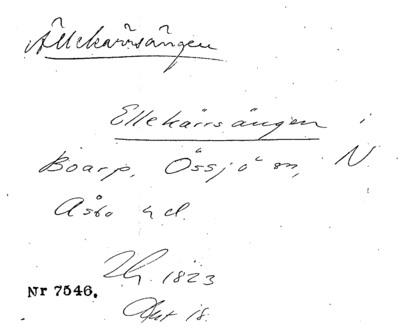 Ällekärrsängen
Ellekärrsängen i
Boarp, Össjö sn, N.
Åsbo hd.
1823
Nr 7546.
Akt 18.